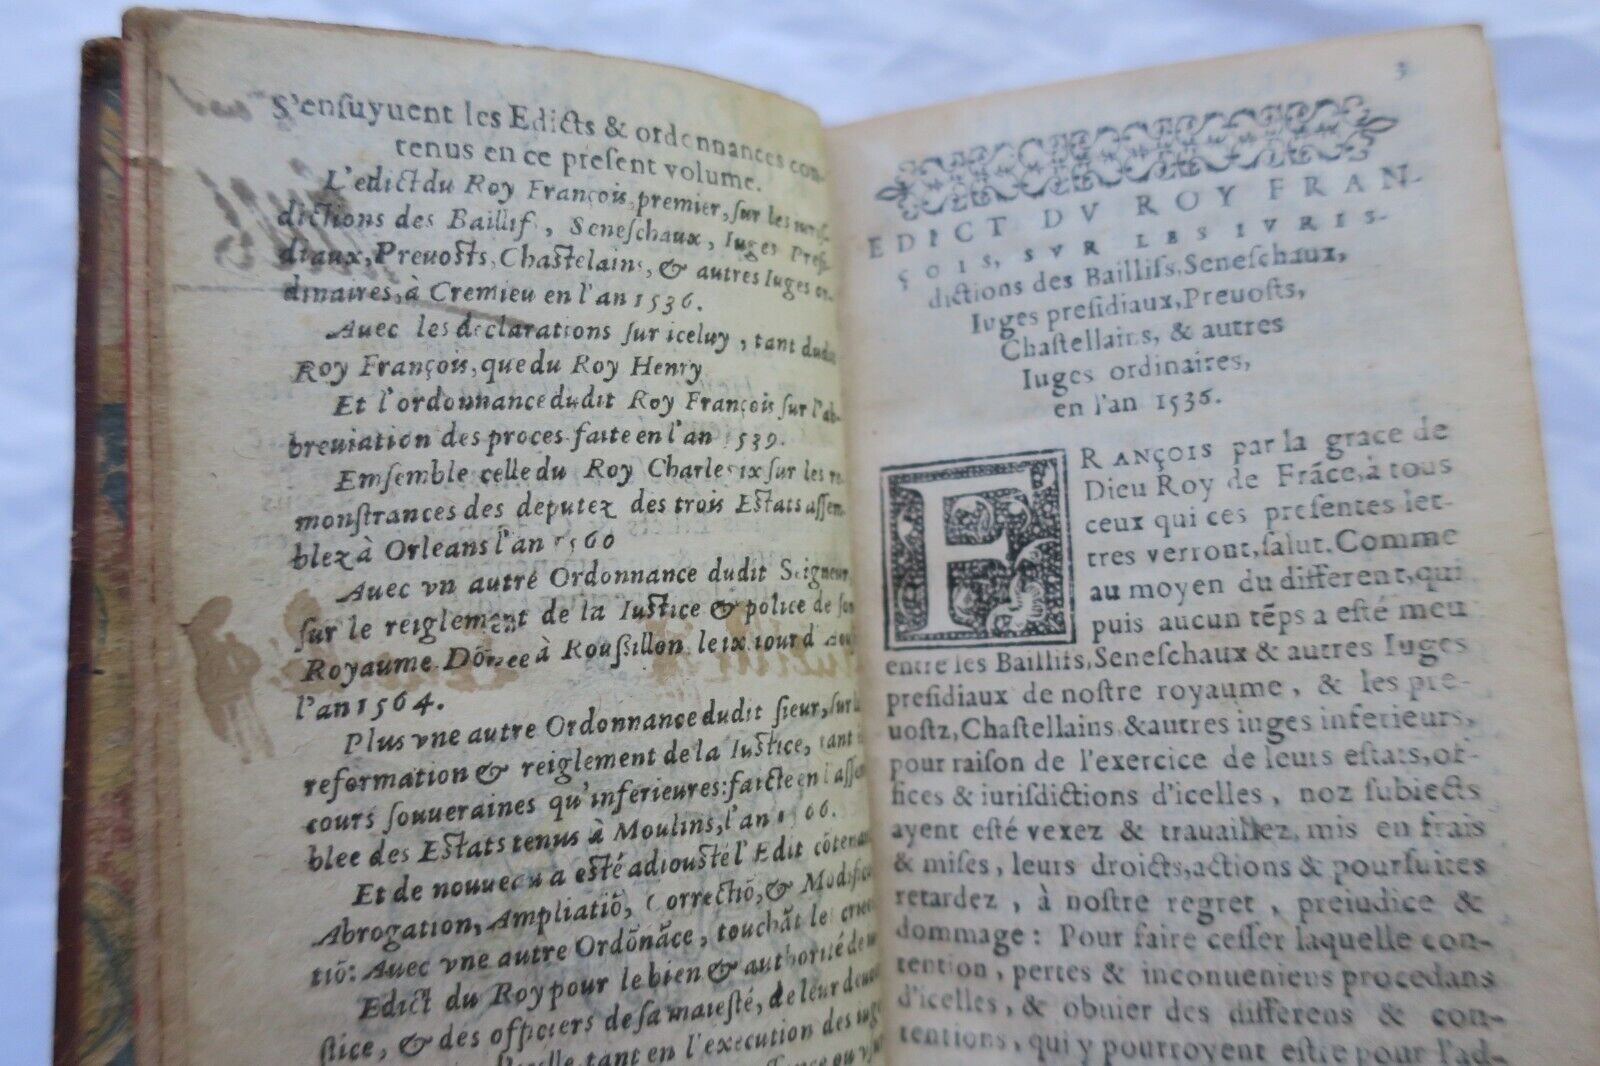 S'enſuyuent les Edicts & ordonnances con-
tenus en ce preſent volume.
L'edict du Roy François, premier, ſur les
dictions des Baillifs, Seneſchaux, Iuges Preſi-
diaux, Preuosts, Chaſtelains, & autres Iuges or-
dinaires, à Cremieu en l'an 1536.
Auec les declarations ſur iceluy, tant dudit
Roy François, que du Roy Henry
Et l'ordonnance dudit Roy François ſur l'ab-
breuiation des proces faite en l'an 1539.
Emſemble celle du Roy Charles ix ſur les re-
monſtrances des deputez des trois Eſtats aſſem-
blez à Orleans l'an 1560
Auec vn autre Ordonnance dudit Seigneur,
ſur le reiglement de la Iuſtice & police de ſon
Royaume Dōnee à Rouſſillon le ix iour d'
l'an 1564.
Plus vne autre Ordonnance dudit ſieur, ſur la
reformation & reiglement de la Iuſtice, tant
cours ſouueraines qu'inferieures: faicte en l'aſſem
blee des Eſtats tenus à Moulins, l'an 1566.
Et de nouueau a eſté adiouſté l'Edit cōtenant
Abrogation, Ampliatiō, Correctiō, & Modifica
tiō: Auec vne autre Ordōnāce, touchāt le
Edict du Roy pour le bien & authorité de
ſtice, & des officiers de ſa maieſté, de leur
tant en l'execution des iuge
ou
3
EDICT DV ROY FRAN-
ÇOIS, SVR LES IVRIS-
dictions des Baillifs, Seneſchaux,
Iuges preſidiaux, Preuoſts,
Chaſtellains, & autres
Iuges ordinaires,
en l'an 1536.
FRANÇOIS par la grace de
Dieu Roy de Frāce, à tous
ceux qui ces preſentes let-
tres verront, ſalut. Comme
au moyen du different, qui
puis aucun tēps a eſté meu
entre les Baillifs, Seneſchaux & autres Iuges
preſidiaux de noſtre royaume, & les pre-
uoſtz, Chaſtellains & autres iuges inferieurs,
pour raiſon de l'exercice de leurs eſtats, of-
fices & iuriſdictions d'icelles, noz ſubiects
ayent eſté vexez & trauaillez, mis en frais
& miſes, leurs droicts, actions & pourſuites
retardez, à noſtre regret, preiudice &
dommage: Pour faire ceſſer laquelle con-
tention, pertes & inconueniens procedans
d'icelles, & obuier des differens & con-
tentions, qui y pourroyent eſtre pour l'ad-